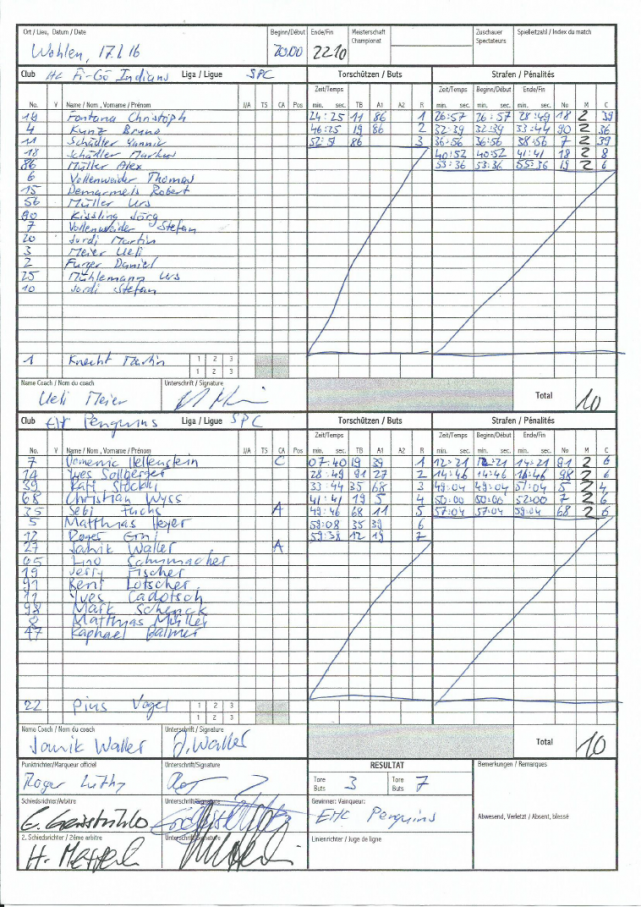 Ort / Lieu, Datum / Date Beginn/Début Ende/Fin Meisterschaft Championat Zuschauer Spectateurs Spielleitzahl / Index du match
Wohlen, 17.1.16 20.00 22.10
Club HC Fi-Gö Indians Liga / Ligue SPC Torschützen / Buts Strafen / Pénalités
Zeit/Temps Zeit/Temps Beginn/Début Ende/Fin
No. V Name / Nom, Vorname / Prénom U/A TS CA Pos min. sec. TB A1 A2 R min. sec. min. sec. min. sec. No M C
Fontana Christoph 24:25 11 86 1 26:57 26:57 28:49 18 2 39
4 Kunz Bruno 46:25 19 86 2 32:39 32:39 33:44 90 2 36
11 Schädler Yannic 52:51 86 3 36:56 36:56 38:56 7 2 39
18 Schädler Markus 40:52 40:52 41:41 18 2 8
86 Müller Alex 53:36 53:36 55:36 19 2 6
6 Vollenweider Thomas
15 Demarmels Robert
56 Müller Urs
90 Kissling Jörg
7 Vollenweider Stefan
20 Jordi Martin
3 Meier Ueli
2 Furger Daniel
25 Mühlemann Urs
10 Jordi Stefan
1 Knecht Martin 1 2 3
1 2 3
Name Coach / Nom du coach Unterschrift / Signature
Ueli Meier Total 10
Club EHC Penguins Liga / Ligue SPC Torschützen / Buts Strafen / Pénalités
Zeit/Temps Zeit/Temps Beginn/Début Ende/Fin
No. V Name / Nom, Vorname / Prénom U/A TS CA Pos min. sec. TB A1 A2 R min. sec. min. sec. min. sec. No M C
7 Domenic Hellenstein C 07:40 19 39 1 12:21 12:21 14:21 81 2 6
14 Yves Sollberger 28:49 91 27 2 14:46 14:46 16:46 98 2 6
39 Ralf Stöckli 33:44 35 68 3 49:04 49:04 51:04 5 2 4
68 Christian Wyss 41:41 19 5 4 50:00 50:00 52:00 7 2 6
35 Sebi Fuchs A 49:46 68 11 5 57:04 57:04 59:04 68 2 6
5 Matthias Heger 59:08 35 39 6
12 Roger Erni 59:38 12 19 7
27 Janik Waller A
65 Lino Schumacher
19 Jerry Fischer
91 Kent Lötscher
11 Yves Cadotsch
98 Mark Schenck
8 Matthias Müller
47 Raphael Balmer
22 Pius Vogel 1 2 3
1 2 3
Name Coach / Nom du coach Unterschrift / Signature
Janik Waller J. Waller Total 10
Punktrichter/Marqueur officiel Unterschrift/Signature RESULTAT Bemerkungen / Remarques
Roger Lüthy Tore Buts 3 Tore Buts 7
Schiedsrichter/Arbitre Unterschrift/Signature Gewinner: Vainqueur:
EHC Penguins Abwesend, Verletzt / Absent, blessé
2. Schiedsrichter / 2ème arbitre Unterschrift/Signature Linienrichter / Juge de ligne